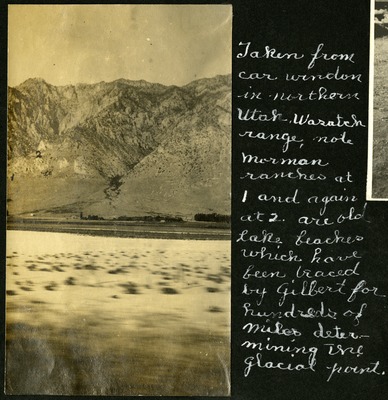 Taken from
car window
in northern
Utah. Wasatch
range, note
Mormon
ranches at
1 and again
at 2. are old
lake beaches
which have
been traced
by Gilbert for
hundreds of
miles deter-
mining the
glacial point.